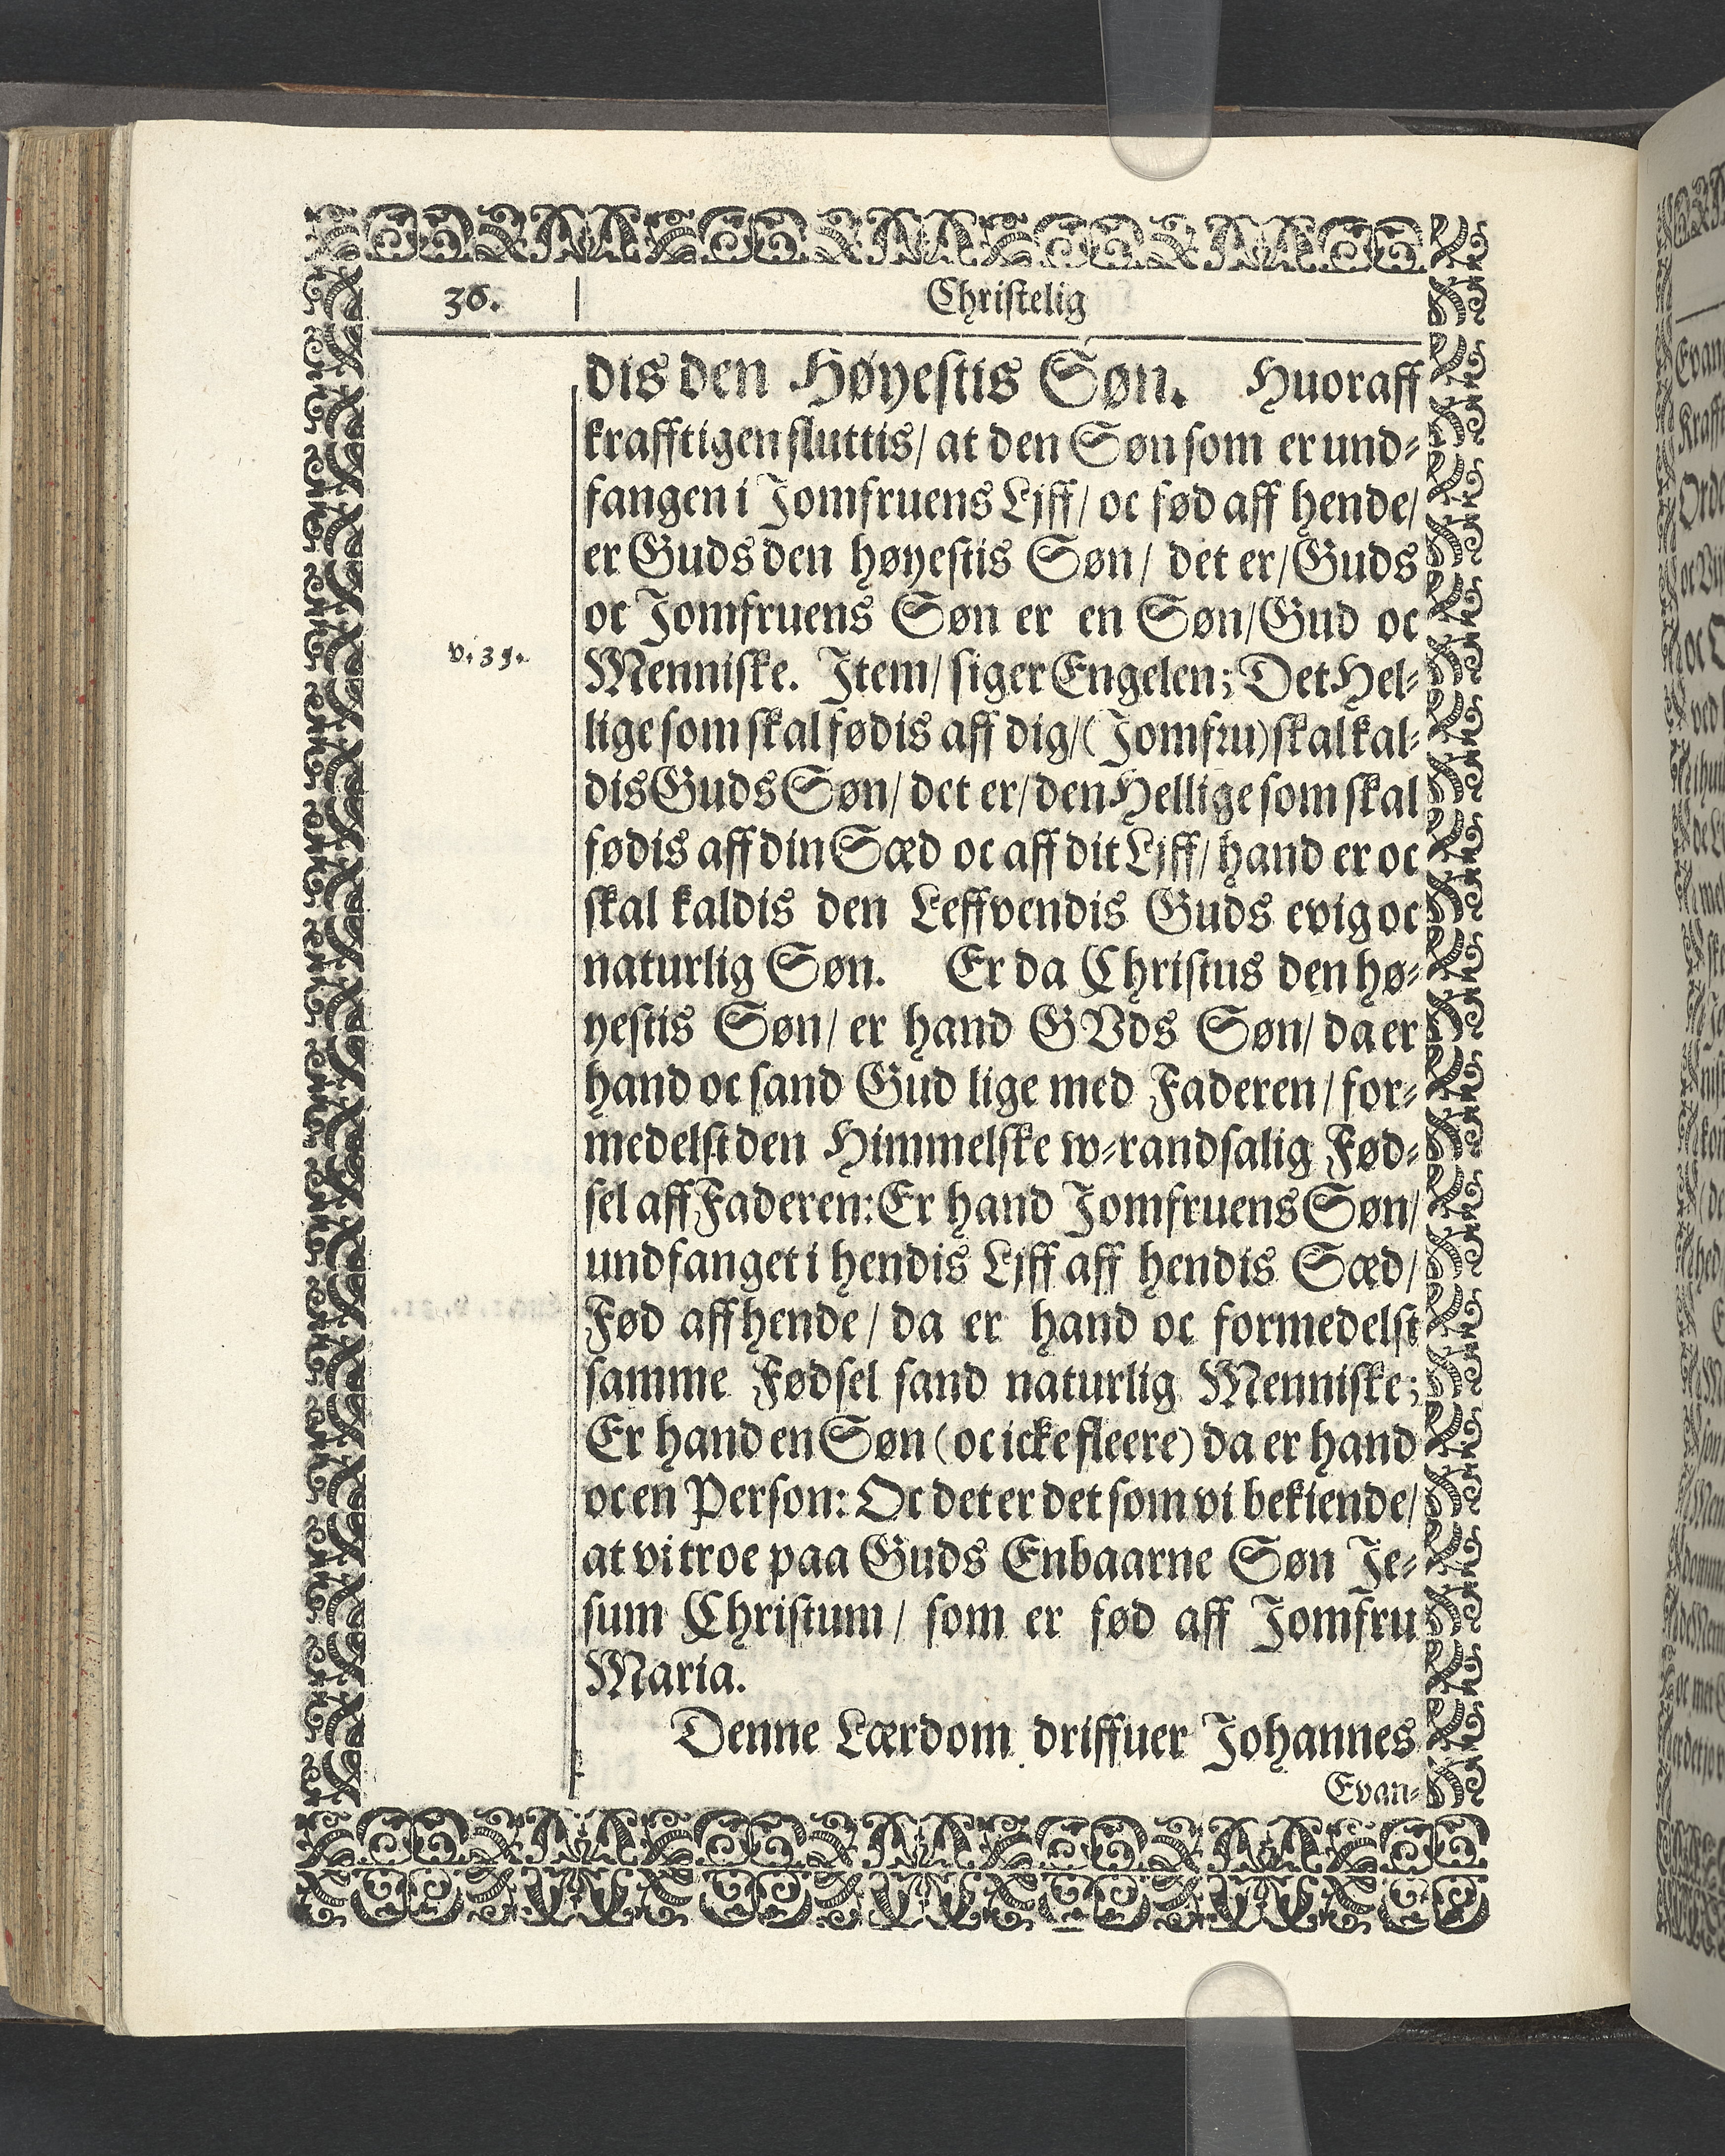 36.
Christelig
dis den Høyestis Søn. Huoraff
krafftigen sluttis/ at den Søn som er und-
fangen i Jomfruens Ljff/ oc fød aff hende/
er Guds den høyestis Søn/ det er/ Guds
oc Jomfruens Søn er en Søn/ Gud oc
v. 35.
Menniske. Item/ siger Engelen; Det Hel-
lige som skal fødis aff dig/ (Jomfru) skal kal-
dis Guds Søn/ det er/ den Hellige som skal
fødis aff din Sæd oc aff dit Ljff/ hand er oc
skal kaldis den Leffvendis Guds evig oc
naturlig Søn. Er da Christus den hø-
yestis Søn/ er hand GVds Søn/ da er
hand oc sand Gud lige med Faderen/ for-
medelst den Himmelske w-randsalig Fød-
sel aff Faderen: Er hand Jomfruens Søn/
undfanget i hendis Ljff aff hendis Sæd/
Fød aff hende/ da er hand oc formedelst
samme Fødsel sand naturlig Menniske;
Er hand en Søn (oc icke fleere) da er hand
oc en Person: Oc det er det som vi bekiende/
at vi troe paa Guds Enbaarne Søn Je-
sum Christum/ som er fød aff Jomfru
Maria.
Denne Lærdom driffuer Johannes
Evan-